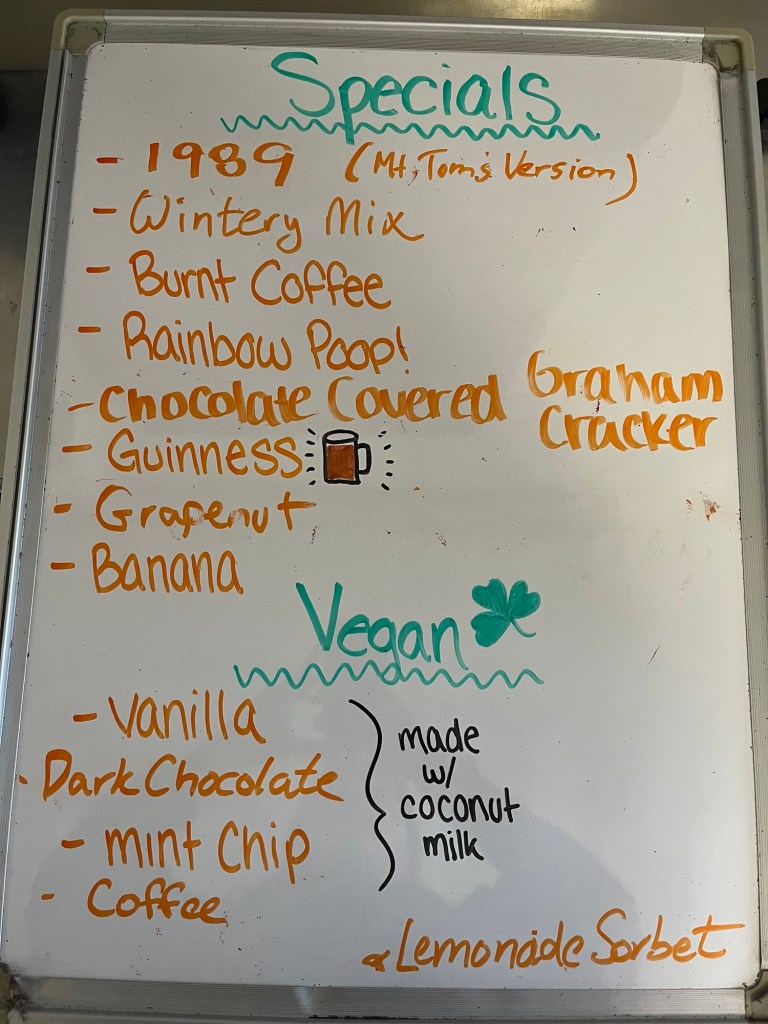 Specials
- 1989 (Mt. Tom's Version)
- Wintery Mix
- Burnt Coffee
- Rainbow Poop!
- Chocolate Covered Graham
Cracker
- Guinness
- Grapenut
- Banana
Vegan
- Vanilla
- Dark Chocolate
- mint Chip
- Coffee
made
w/
coconut
milk
& Lemonade Sorbet